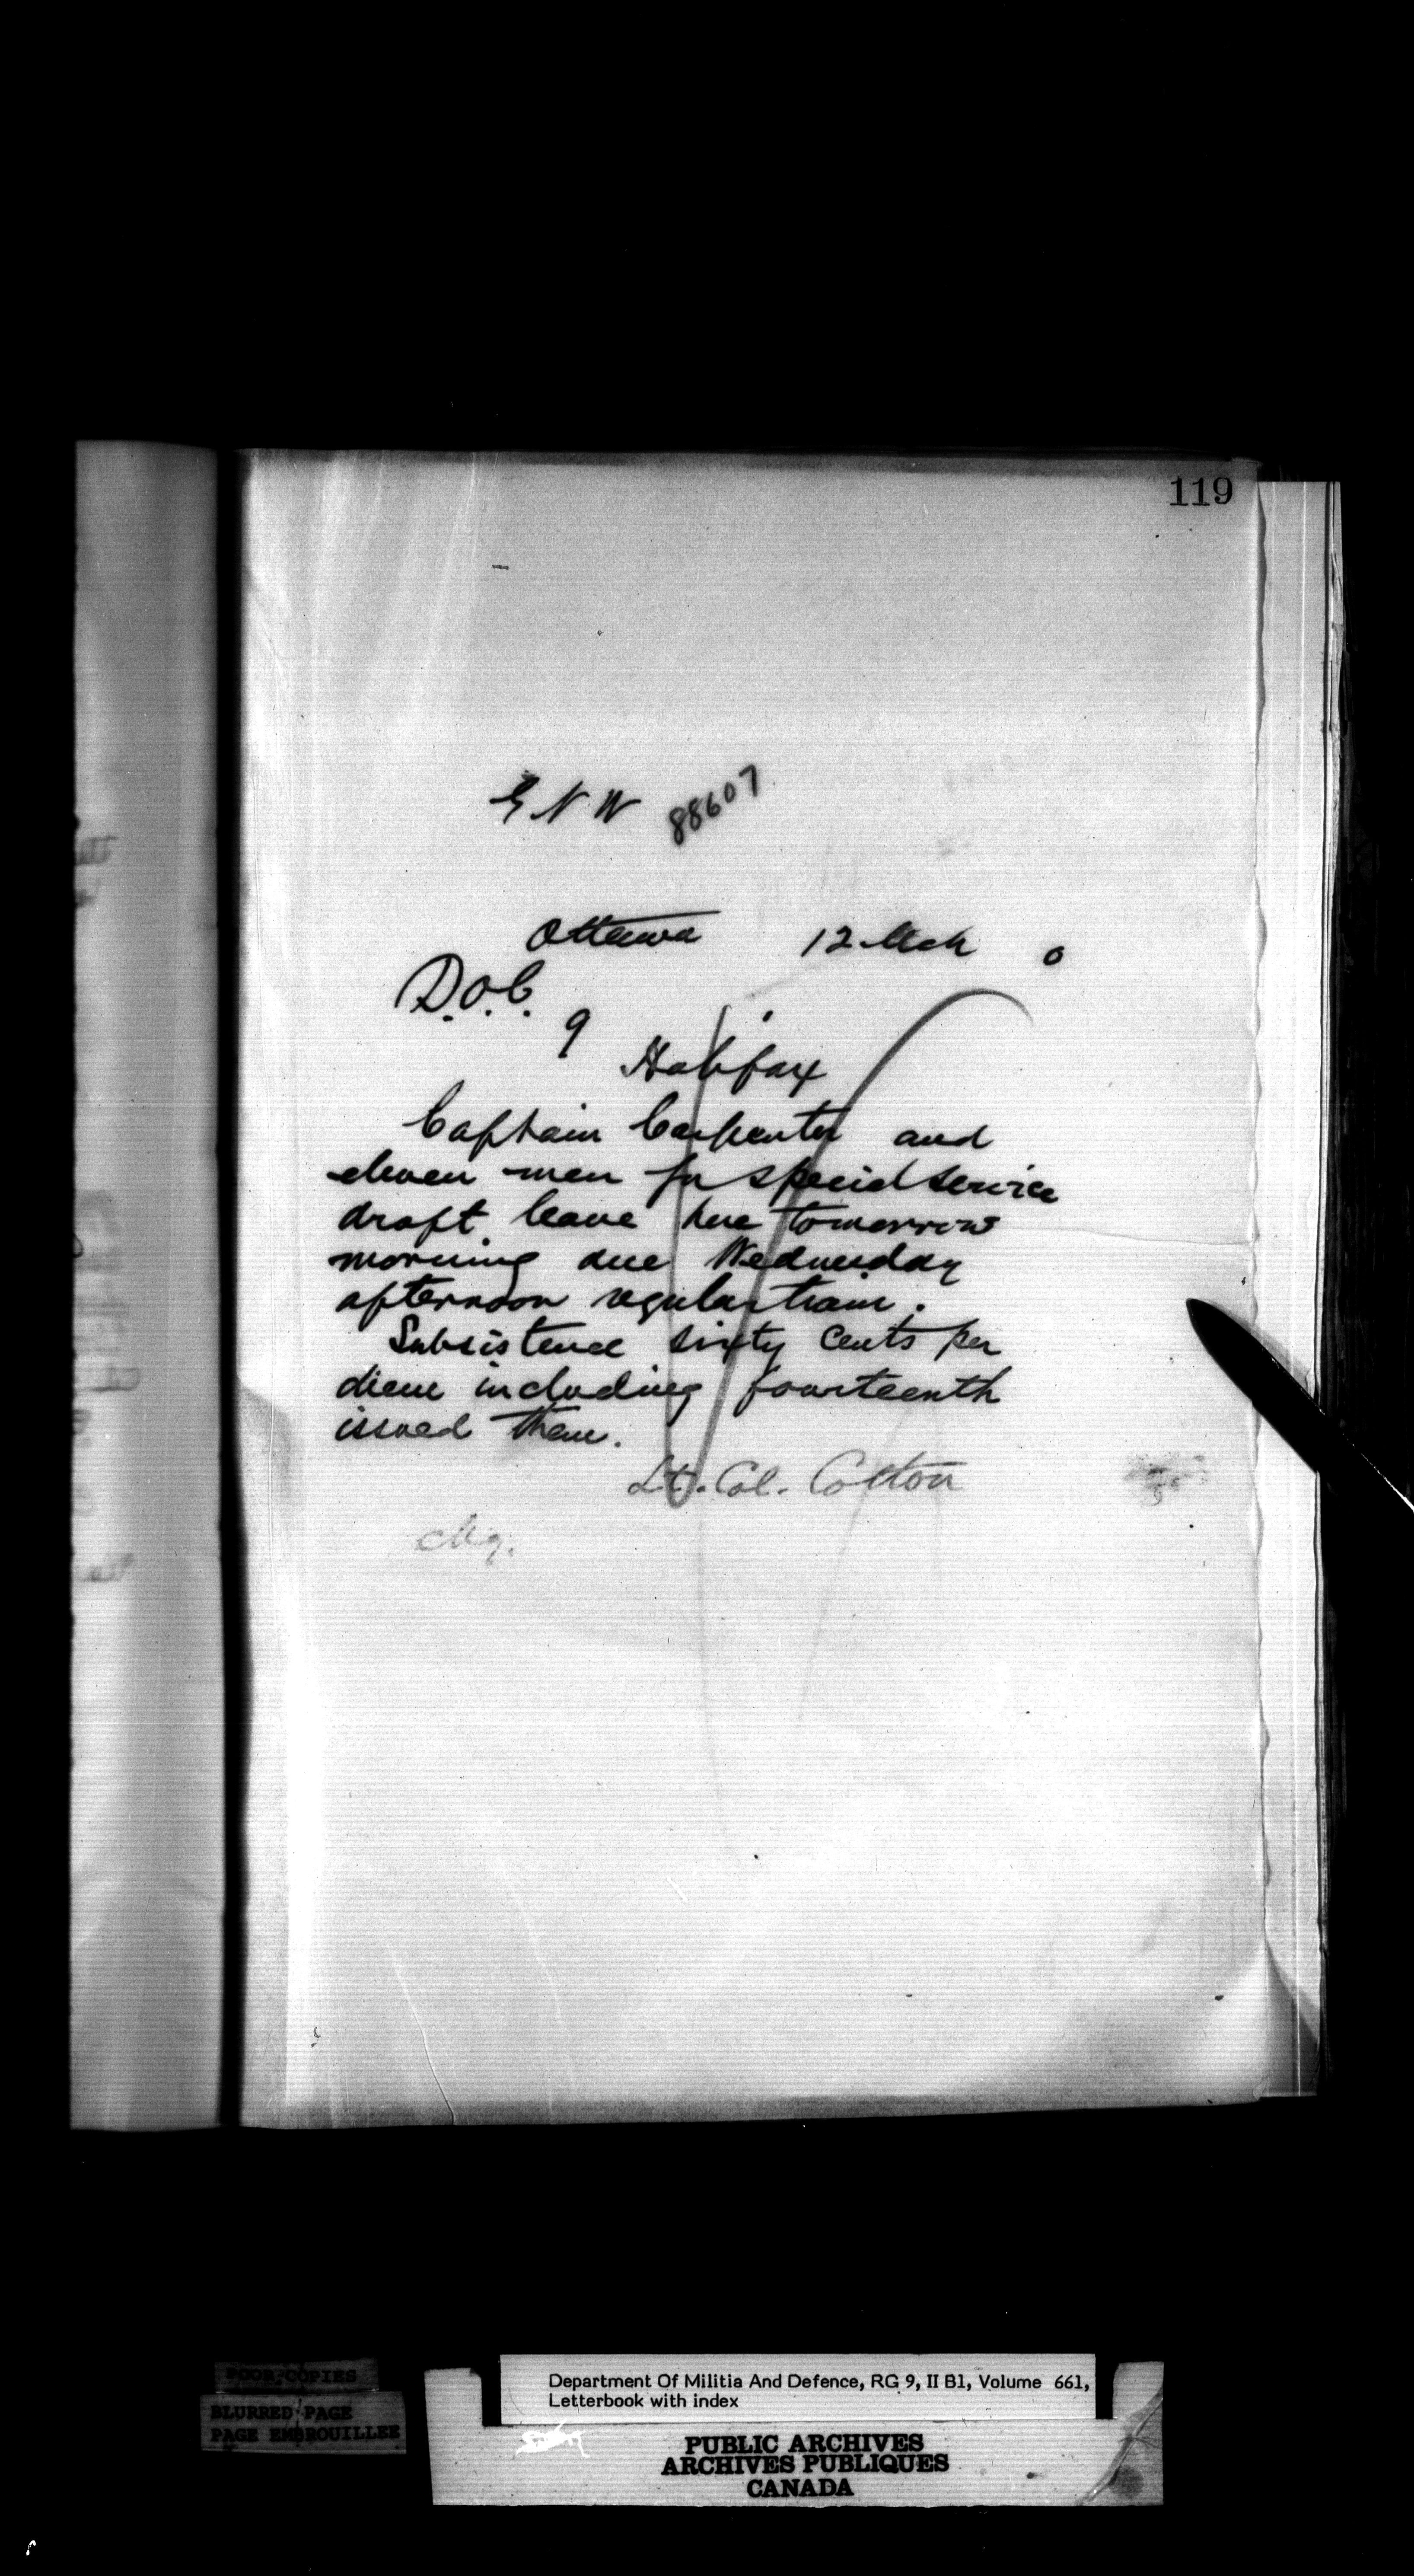 119
G N W 88607
Ottawa 12 Mch 0
D.O.C.
9
Halifax
Captain Carpenter and
eleven men for special service
draft leave here tomorrow
morning due Wednesday
afternoon regular train.
Subsistence sixty cents per
diem including fourteenth
issued them.
Lt. Col. Cotton
Department Of Militia And Defence, RG 9, II B1, Volume 661,
Letterbook with index
POOR COPIES
BLURRED PAGE
PAGE EMBROUILLEE
PUBLIC ARCHIVES
ARCHIVES PUBLIQUES
CANADA